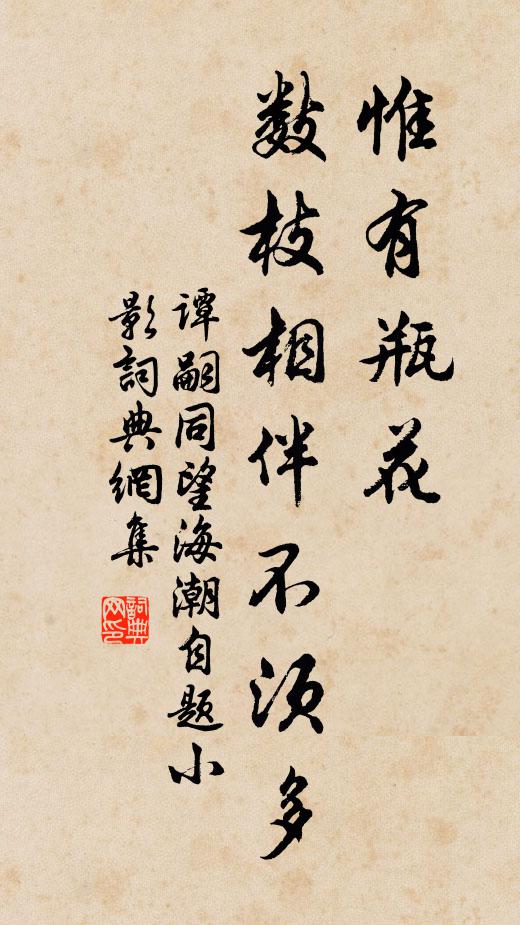 惟有瓶花
数枝相伴不须多
谭嗣同望海潮自题小
影詞典網集
詞典
网印